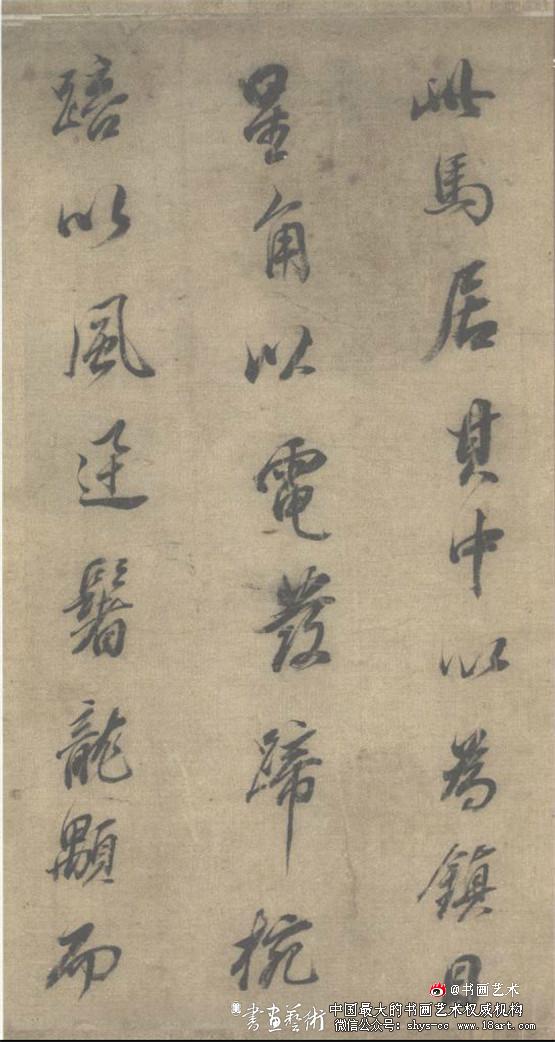 此馬居其中以為鎮目
星角以電發蹄椀
踣以風迅鬐龍顒而
@书画艺术
書画藝術
中国最大的书画艺术权威机构
微信公众号: shys-cc www.18art.com